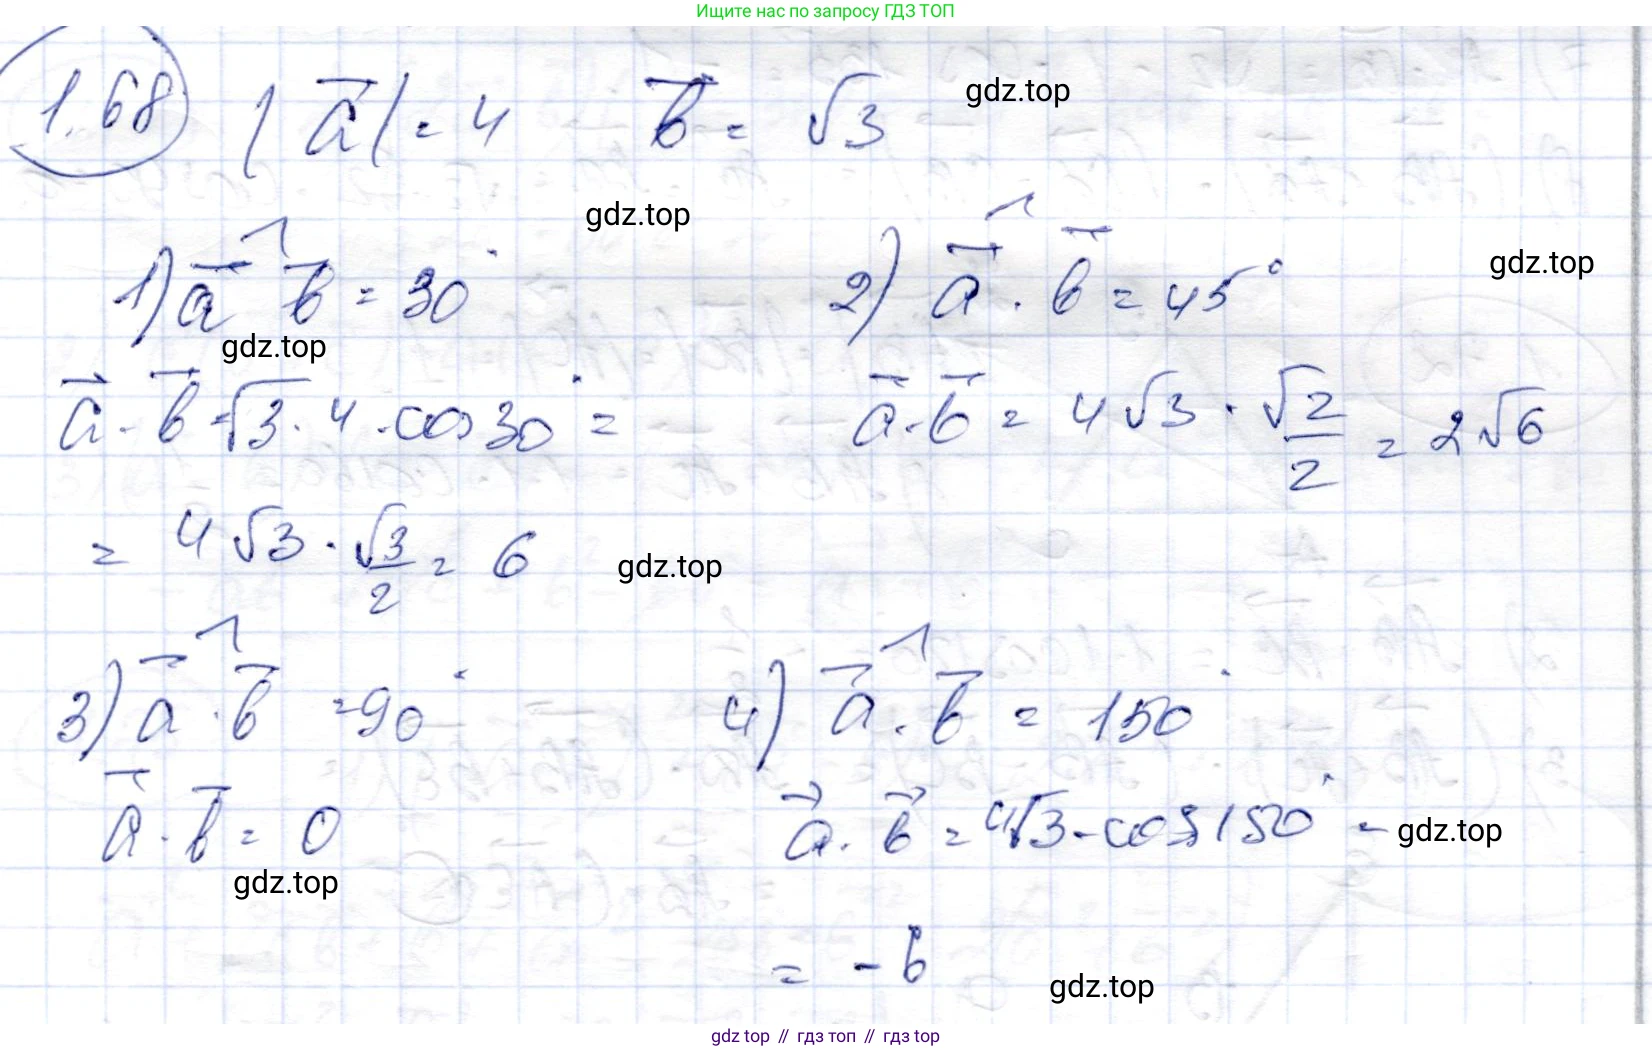 Ищите нас по запросу ГДЗ ТОП
1.68 |a⃗| = 4 b⃗ = √3
gdz.top
gdz.top
1) a⃗ ^ b⃗ = 30° 2) a⃗ ^ · b⃗ = 45°
gdz.top
gdz.top
a⃗ · b⃗ = √3 · 4 · cos 30° = a⃗ · b⃗ = 4√3 · √2/2 = 2√6
= 4√3 · √3/2 = 6
gdz.top
3) a⃗ ^ · b⃗ = 90° 4) a⃗ ^ · b⃗ = 150°
a⃗ · b⃗ = 0 a⃗ · b⃗ = 4√3 · cos 150° =
gdz.top
gdz.top
= -6
gdz.top
gdz top // гдз топ // гдз top